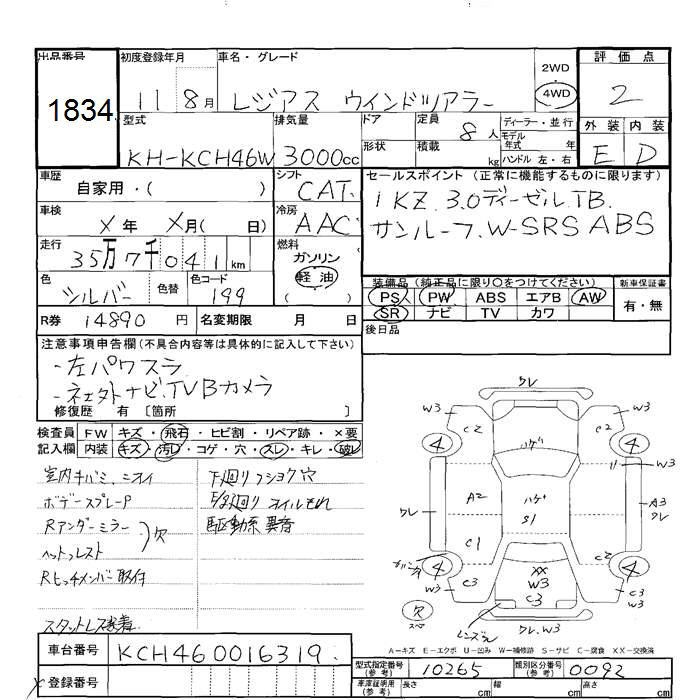 出品番号
1834
初度登録年月
11 8月
車名・グレード
レジアス ウインドツアラー
2WD
4WD
評価点
2
型式
KH-KCH46W
排気量
3000cc
ドア
形状
定員
8人
積載
kg
ディーラー・並行
モデル
年式 年
ハンドル 左・右
外装 内装
E D
車歴
自家用・( )
シフト
CAT
セールスポイント(正常に機能するものに限ります)
1KZ 3.0ディーゼル.TB.
サンルーフ.W-SRS ABS
車検
X年 X月( 日)
冷房
AAC
走行
35万7千041km
燃料
ガソリン
軽油
色
シルバー
色替
色コード
199
装備品(純正品に限り○をつけてください)
PS PW ABS エアB AW
SR ナビ TV カワ
新車保証書
有・無
R券 14890円
名変期限 月 日
後日品
注意事項申告欄(不具合内容等は具体的に記入して下さい)
・左パワスラ
・ネェクトナビ.TV Bカメラ
修復歴 有〔箇所 〕
検査員
記入欄
FW キズ・飛石・ヒビ割・リペア跡・×要
内装 キズ・汚レ・コゲ・穴・スレ・キレ・破レ
室内キバミ、ニオイ
ボデースプレーP
Rアンダーミラー
ヘッドレスト
欠
Rヒッチメンバー取付
スタットレス装着
下廻りフショク穴
下廻りオイルもれ
駆動系異音
クレ
W3
C2
4
ハゲ
C2
W3
4
クレ
A2
ハゲ
S1
W3
A3
クレ
C1
C2
4
W3
C3
XX
W3
C3
4
C3
W3
欠
スペ
クレ.W3
A-キズ E-エクボ U-凹み W-補修跡 S-サビ C-腐食 XX-交換済
車台番号
KCH46 0016319
登録番号
型式指定番号
(参考)
10265
類別区分番号
(参考)
0092
車庫証明用
(参考)
長さ cm
幅 cm
高さ cm